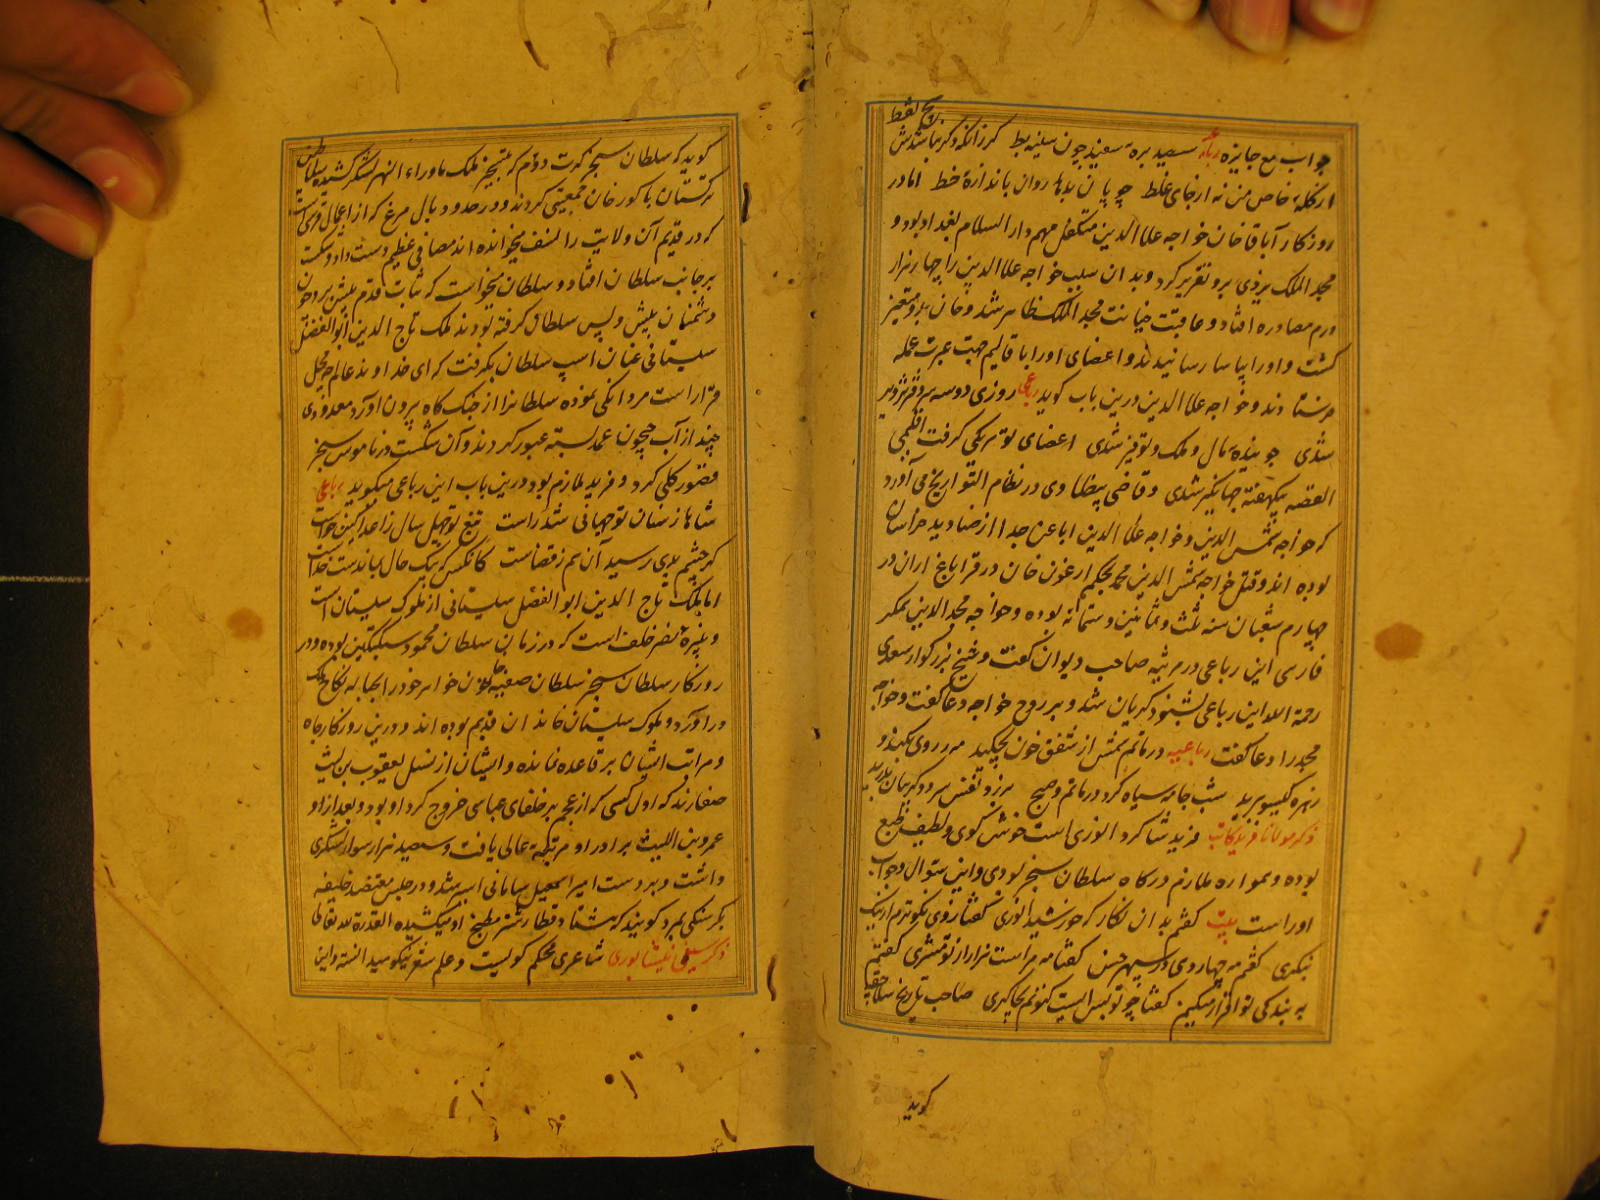 جواب مع جایزه رباعیه سیصد بره سفید چون سینه بط کز رانکه دکر نباشدش هیچ نقط
از کلهٔ خاص من نه از جای غلط چوپان بدهد روان باندازهٔ خط اما در
روزکار آباقا خان خواجه علاالدین متکفل مهم دارالسلام بغداد بود و
مجدالملک یزدی برو تقریر کرد و بدان سبب خواجه علاالدین را چهار هزار
درم مصادره افتاد و عاقبت خیانت مجدالملک ظاهر شد و خان برو متغیر
کشت و او را بیاسا رسانیدند و اعضای او را باقالیم جهت عبرت عمله
فرستادند و خواجه علاالدین درین باب کوید رباعی روزی دو سه بر دفتر تزویر
شدی جویندهٔ مال و ملک و توفیر شدی اعضای تو هر یکی کرفت اقلیمی
القصه بیکهفته جهانکیر شدی و قاضی بیضاوی در نظام التواریخ می آورد
که خواجه شمس الدین و خواجه علاالدین ابا عن جد از صنادید خراسان
بوده اند و قتل خواجه شمس الدین محمد بحکم ارغون خان در قراباغ اران در
چهارم شعبان سنه ثلث و ثمانین و ستمائه بوده و خواجه مجدالدین همکر
فارسی این رباعی در مرثیه صاحب دیوان کفت و شیخ بزرکوار سعدی
رحمة الله این رباعی بشنود کریان شد و بر روح خواجه دعا کفت و خواجه
مجد را دعا کفت رباعیه در ماتم شمس از شفق خون بچکید مه روی بکند و
زهره کیسو ببرید شب جامه سیاه کرد در ماتم و صبح برزد نفس سرد و کریبان بدرید
ذکر مولانا فرید کاتب فرید شاکرد انوری است خوش کوی و لطیف طبع
بوده و همواره ملازم درکاه سلطان سنجر بودی و این سئوال و جواب
اوراست بیت کفتم بدان نکار که خورشید انوری کفتا ز وی نکوترم ار نیک
بنکری کفتم مه چهاردهی در سپهر حسن کفتا مه مراست هزار از تو مشتری کفتم
به بندکی تو اقرار میکنم کفتا چو تو بسیست کنونم بچاکری صاحب تاریخ سلاجقه
کوید
کوید که سلطان سنجر کرت دوم که بتسخیر ملک ماوراء النهر لشکر کشید سلاطین
ترکستان با کورخان جمعیتی کردند و در حدود بال مرغ که از اعمال قرشی است
که در قدیم آن ولایت را نسف میخوانده اند مصافی عظیم دست داد و شکست
بر جانب سلطان افتاد و سلطان میخواست که ثبات قدم پیش برد چون
دشمنان پیش و پس سلطان کرفته بودند ملک تاج الدین ابوالفضل
سیستانی عنان اسپ سلطان بکرفت که ای خداوند عالم چه محل
قرار است مردانکی نموده سلطانرا از جنک کاه بیرون آورد معدودی
چند از آب جیحون عمد بسته عبور کردند و آن شکست در ناموس سنجر
قصور کلی کرد و فرید ملازم بود درین باب این رباعی میکوید رباعی
شاها ز سنان تو جهانی شد راست تیغ تو چهل سال ز اعدا کین خواست
کر چشم بدی رسید آن هم ز قضاست کانکس که بیک حال بماندست خداست
اما ملک تاج الدین ابوالفضل سیستانی از ملوک سیستان است
و نبیرهٔ نصر خلف است که در زمان سلطان محمود سبکتکین بوده و در
روزکار سلطان سنجر سلطان صفیه خاتون خواهر خود را بحباله نکاح ملک
در آورد و ملوک سیستان خاندان قدیم بوده اند و درین روزکار جاه
و مراتب ایشان برقاعده نمانده و ایشان از نسل یعقوب بن لیث
صفارند که اول کسی که از عجم بر خلفای عباسی خروج کرد او بود و بعد از او
عمرو بن اللیث برادر او مرتبهٔ عالی یافت و سیصد هزار سوار لشکری
داشت و بر دست امیر اسمعیل سامانی اسیر شد و در حبس معتضد خلیفه
بکرسنکی بمرد کویند که هشتاد قطار شتر مطبخ او میکشیده القدرة لله تعالی
ذکر سیفی نیشابوری شاعری محکم کوست و علم شعر نیکو میدانسته و این